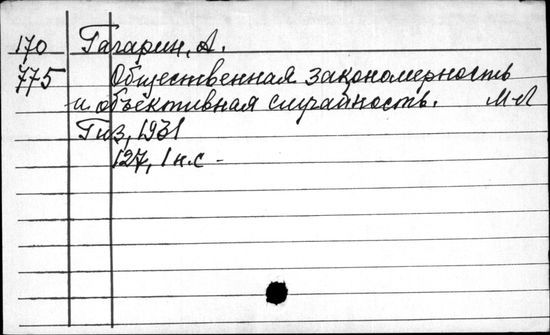 170 Гагарин, А.
775 Общественная закономерность
и объективная случайность. М-Л
Гиз, 1931
127, 1 н.с -